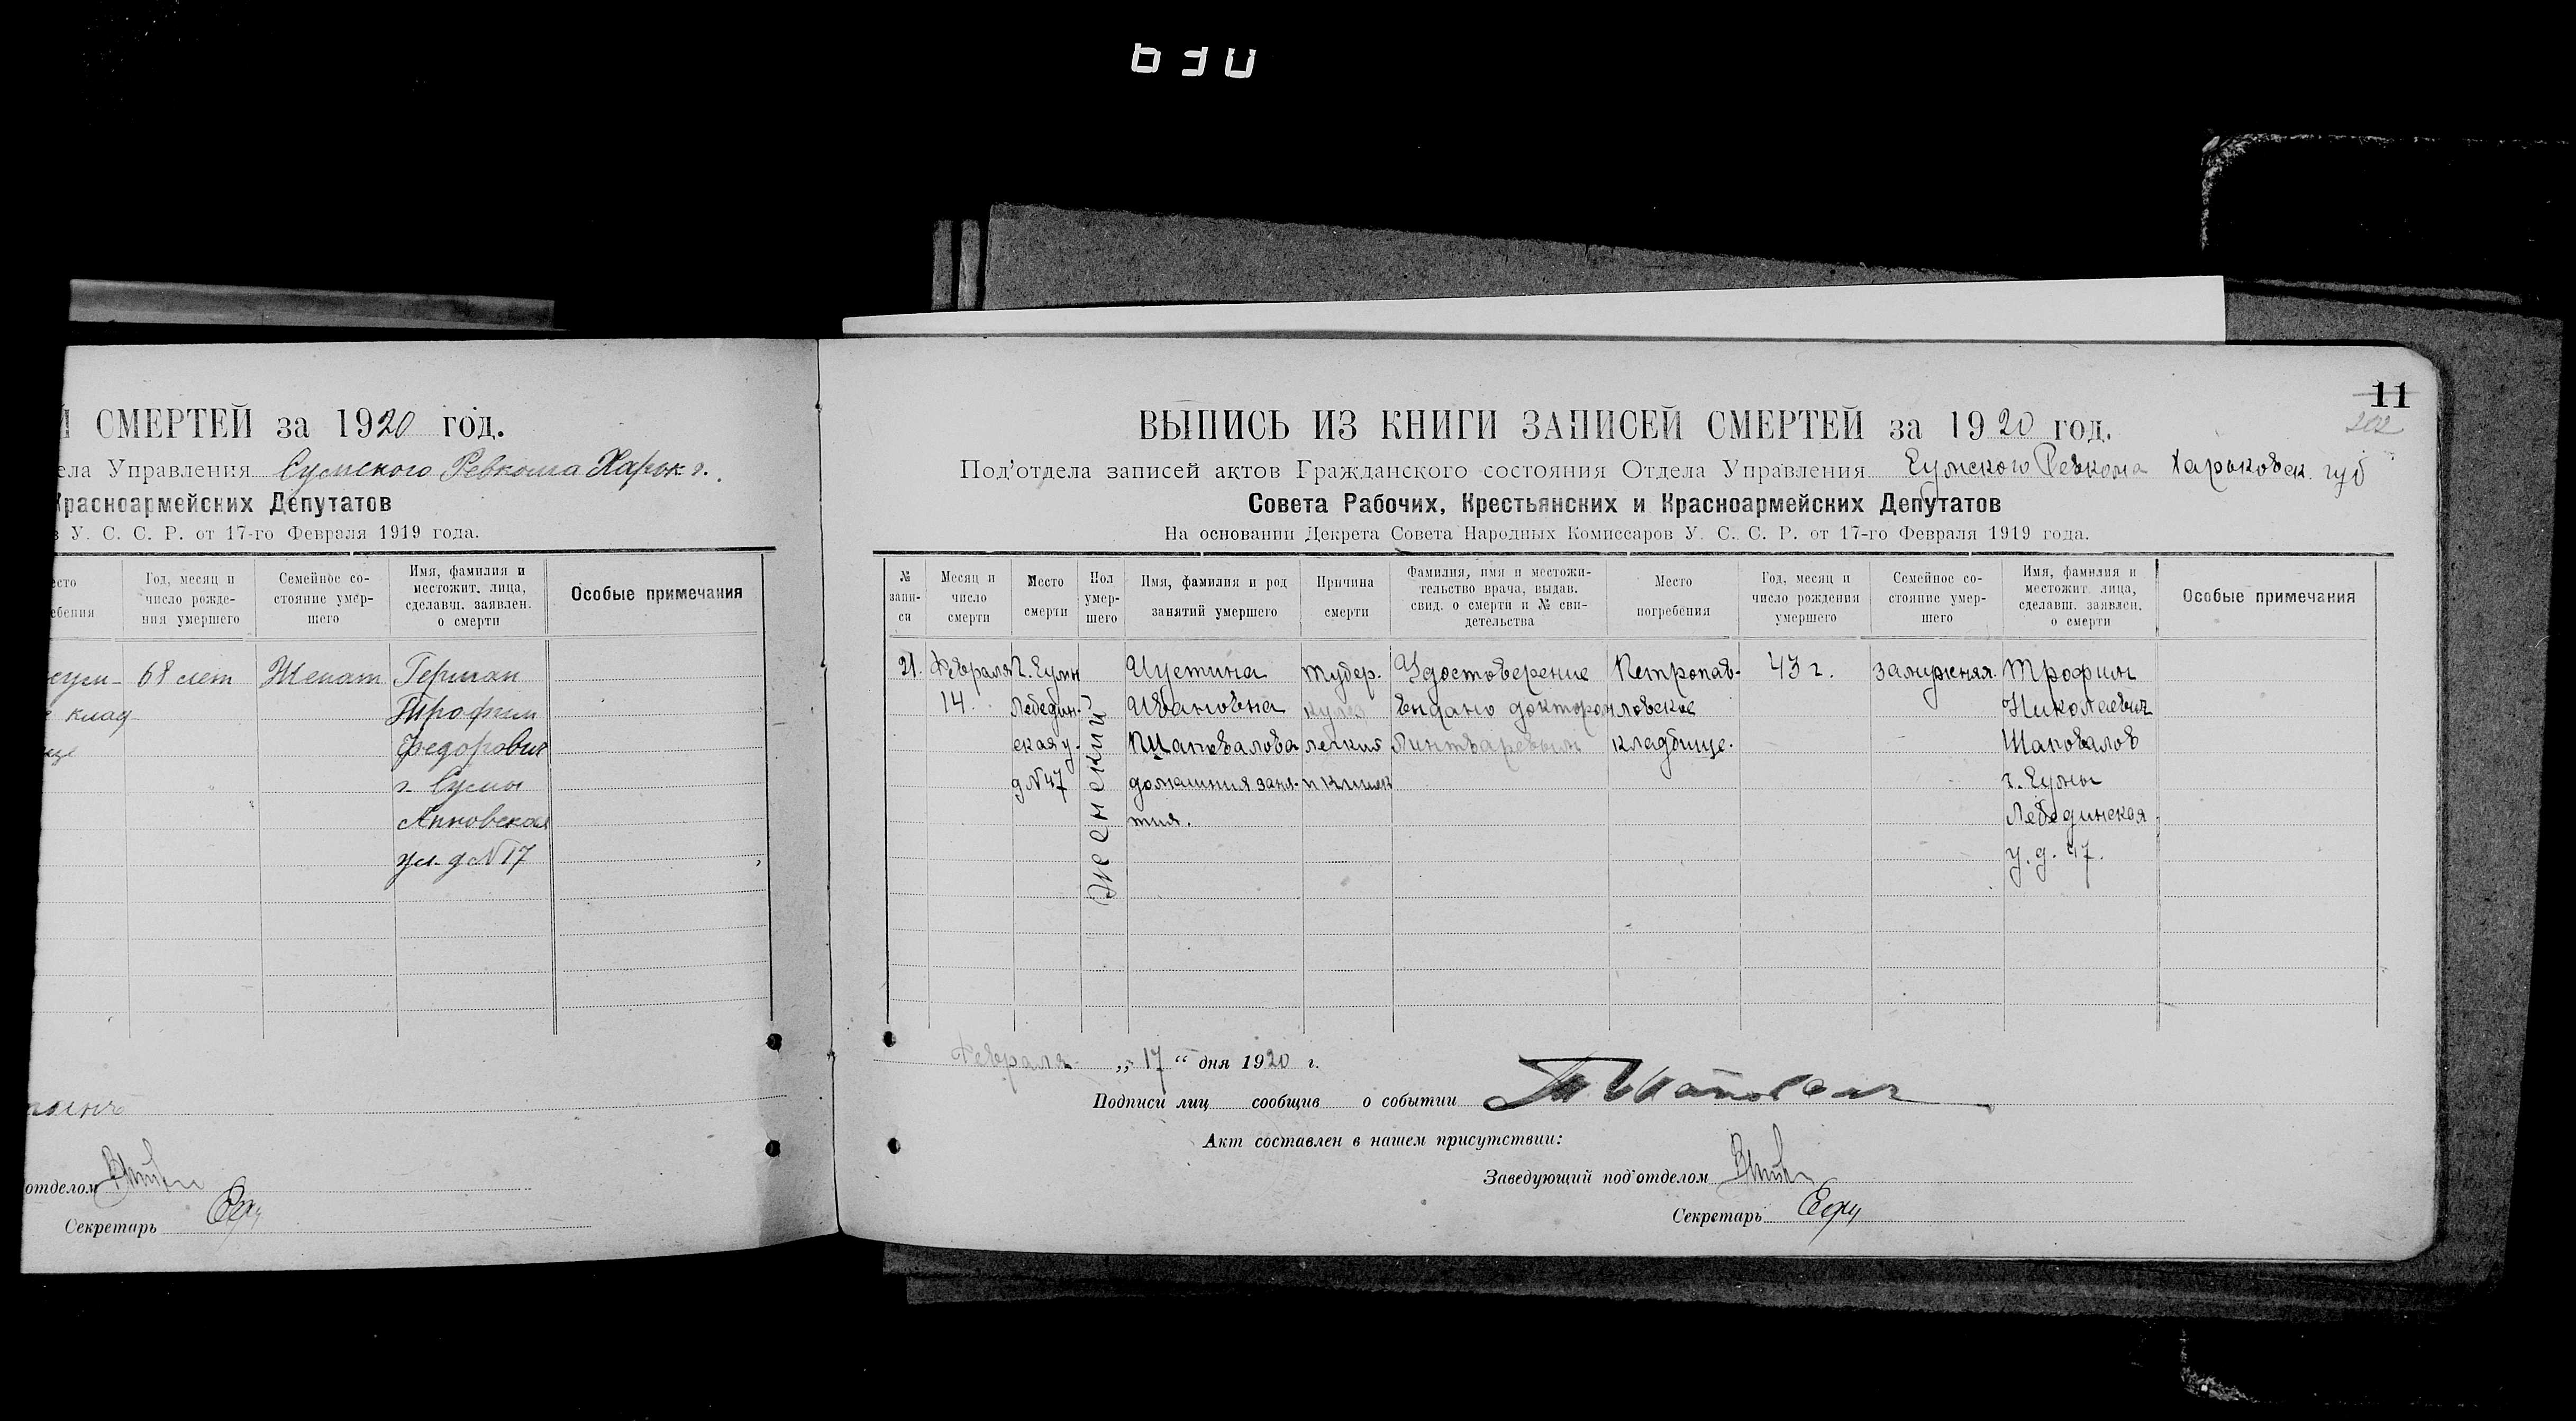 630
СМЕРТЕЙ за 1920 год.
ела Управления Сумского Ревкома Харьк. г.
Красноармейских Депутатов
в У. С. С. Р. от 17-го Февраля 1919 года.
есто
ебения
Год, месяц и
число рожде-
ния умершего
Семейное со-
стояние умер-
шего
Имя, фамилия и
местожит. лица,
сделавш. заявлен.
о смерти
Особые примечания
сум-
клад
ще
68 лет
Женат
Герман
Трофим
Федорович
г. Сумы
ул. д N 17
отделом
Секретарь
11
202
ВЫПИСЬ ИЗ КНИГИ ЗАПИСЕЙ СМЕРТЕЙ за 1920 год.
Под'отдела записей актов Гражданского состояния Отдела Управления Сумского Ревкома Харьковск. губ
Совета Рабочих, Крестьянских и Красноармейских Депутатов
На основании Декрета Совета Народных Комиссаров У. С. С. Р. от 17-го Февраля 1919 года.
№
запи-
си
Месяц и
число
смерти
Место
смерти
Пол
умер-
шего
Имя, фамилия и род
занятий умершего
Причина
смерти
Фамилия, имя и местожи-
тельство врача, выдав.
свид. о смерти и № сви-
детельства
Место
погребения
Год, месяц и
число рождения
умершего
Семейное со-
стояние умер-
шего
Имя, фамилия и
местожит. лица,
сделавш. заявлен.
о смерти
Особые примечания
21.
Февраля
14.
г. Сумы
Лебедин-
ская у.
д N 47
Женский
Иустина
Ивановна
Шаповалова
домашния заня-
тия.
тубер-
кулез
легких
Удостоверение
выдано доктором
Линтваревым
Петропав-
ловское
кладбище.
43 г.
замужняя.
Трофим
Николаевич
Шаповалов
г. Сумы
Лебединская
у. д. 47.
Февраля „ 17 “ дня 1920 г.
Подписи лиц сообщив о событии Т Шаповал
Акт составлен в нашем присутствии:
Заведующий под'отделом
Секретарь